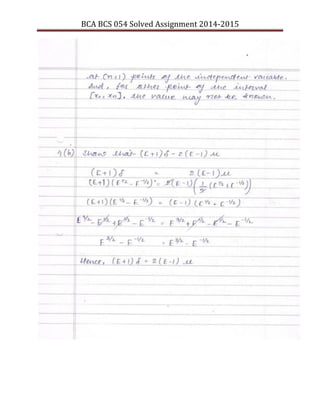 BCA BCS 054 Solved Assignment 2014-2015
at (n+1) points of the independent variable.
And, for other point of the interval
[x₀, xn], the value may not be known.
9(b) Show that (E+1)δ = 2(E-1)μ
(E+1)δ = 2(E-1)μ
(E+1)(E^½ - E^-½) = 2(E-1)(½(E^½ + E^-½))
(E+1)(E^½ - E^-½) = (E-1)(E^½ + E^-½)
E^3/2 - E^½ + E^½ - E^-½ = E^3/2 + E^½ - E^½ - E^-½
E^3/2 - E^-½ = E^3/2 - E^-½
Hence, (E+1)δ = 2(E-1)μ